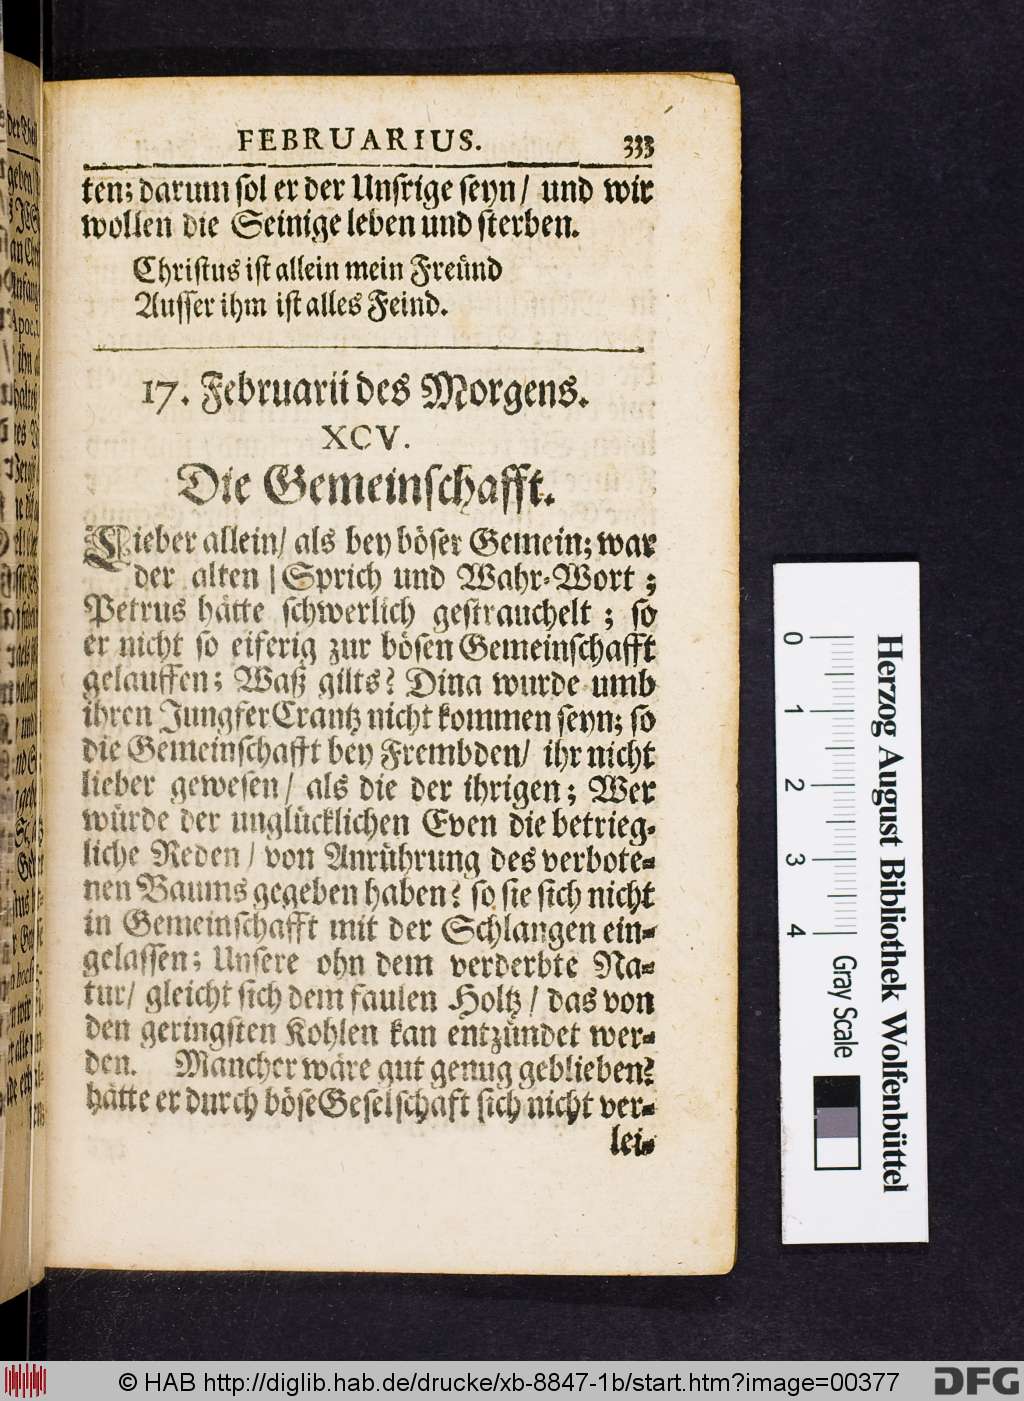 FEBRUARIUS. 333
ten; darum sol er der Unsrige seyn/ und wir
wollen die Seinige leben und sterben.
Christus ist allein mein Freünd
Ausser ihm ist alles Feind.
17. Februarii des Morgens.
XCV.
Die Gemeinschafft.
Lieber allein/ als bey böser Gemein; war
der alten | Sprich und Wahr-Wort;
Petrus hätte schwerlich gestrauchelt; so
er nicht so eiferig zur bösen Gemeinschafft
gelauffen; Waß gilts? Dina wurde umb
ihren Jungfer Crantz nicht kommen seyn; so
die Gemeinschafft bey Frembden/ ihr nicht
lieber gewesen/ als die der ihrigen; Wer
würde der unglücklichen Even die betrieg-
liche Reden/ von Anrührung des verbote-
nen Baums gegeben haben? so sie sich nicht
in Gemeinschafft mit der Schlangen ein-
gelassen; Unsere ohn dem verderbte Na-
tur/ gleicht sich dem faulen Holtz/ das von
den geringsten Kohlen kan entzündet wer-
den. Mancher wäre gut genug geblieben?
hätte er durch böse Geselschaft sich nicht ver-
lei-
0 1 2 3 4
Gray Scale
Herzog August Bibliothek Wolfenbüttel
© HAB http://diglib.hab.de/drucke/xb-8847-1b/start.htm?image=00377
DFG